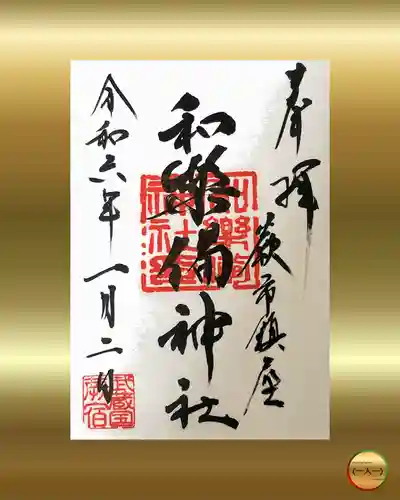 奉拝
蕨市鎮座
和樂備神社
令和六年一月二日